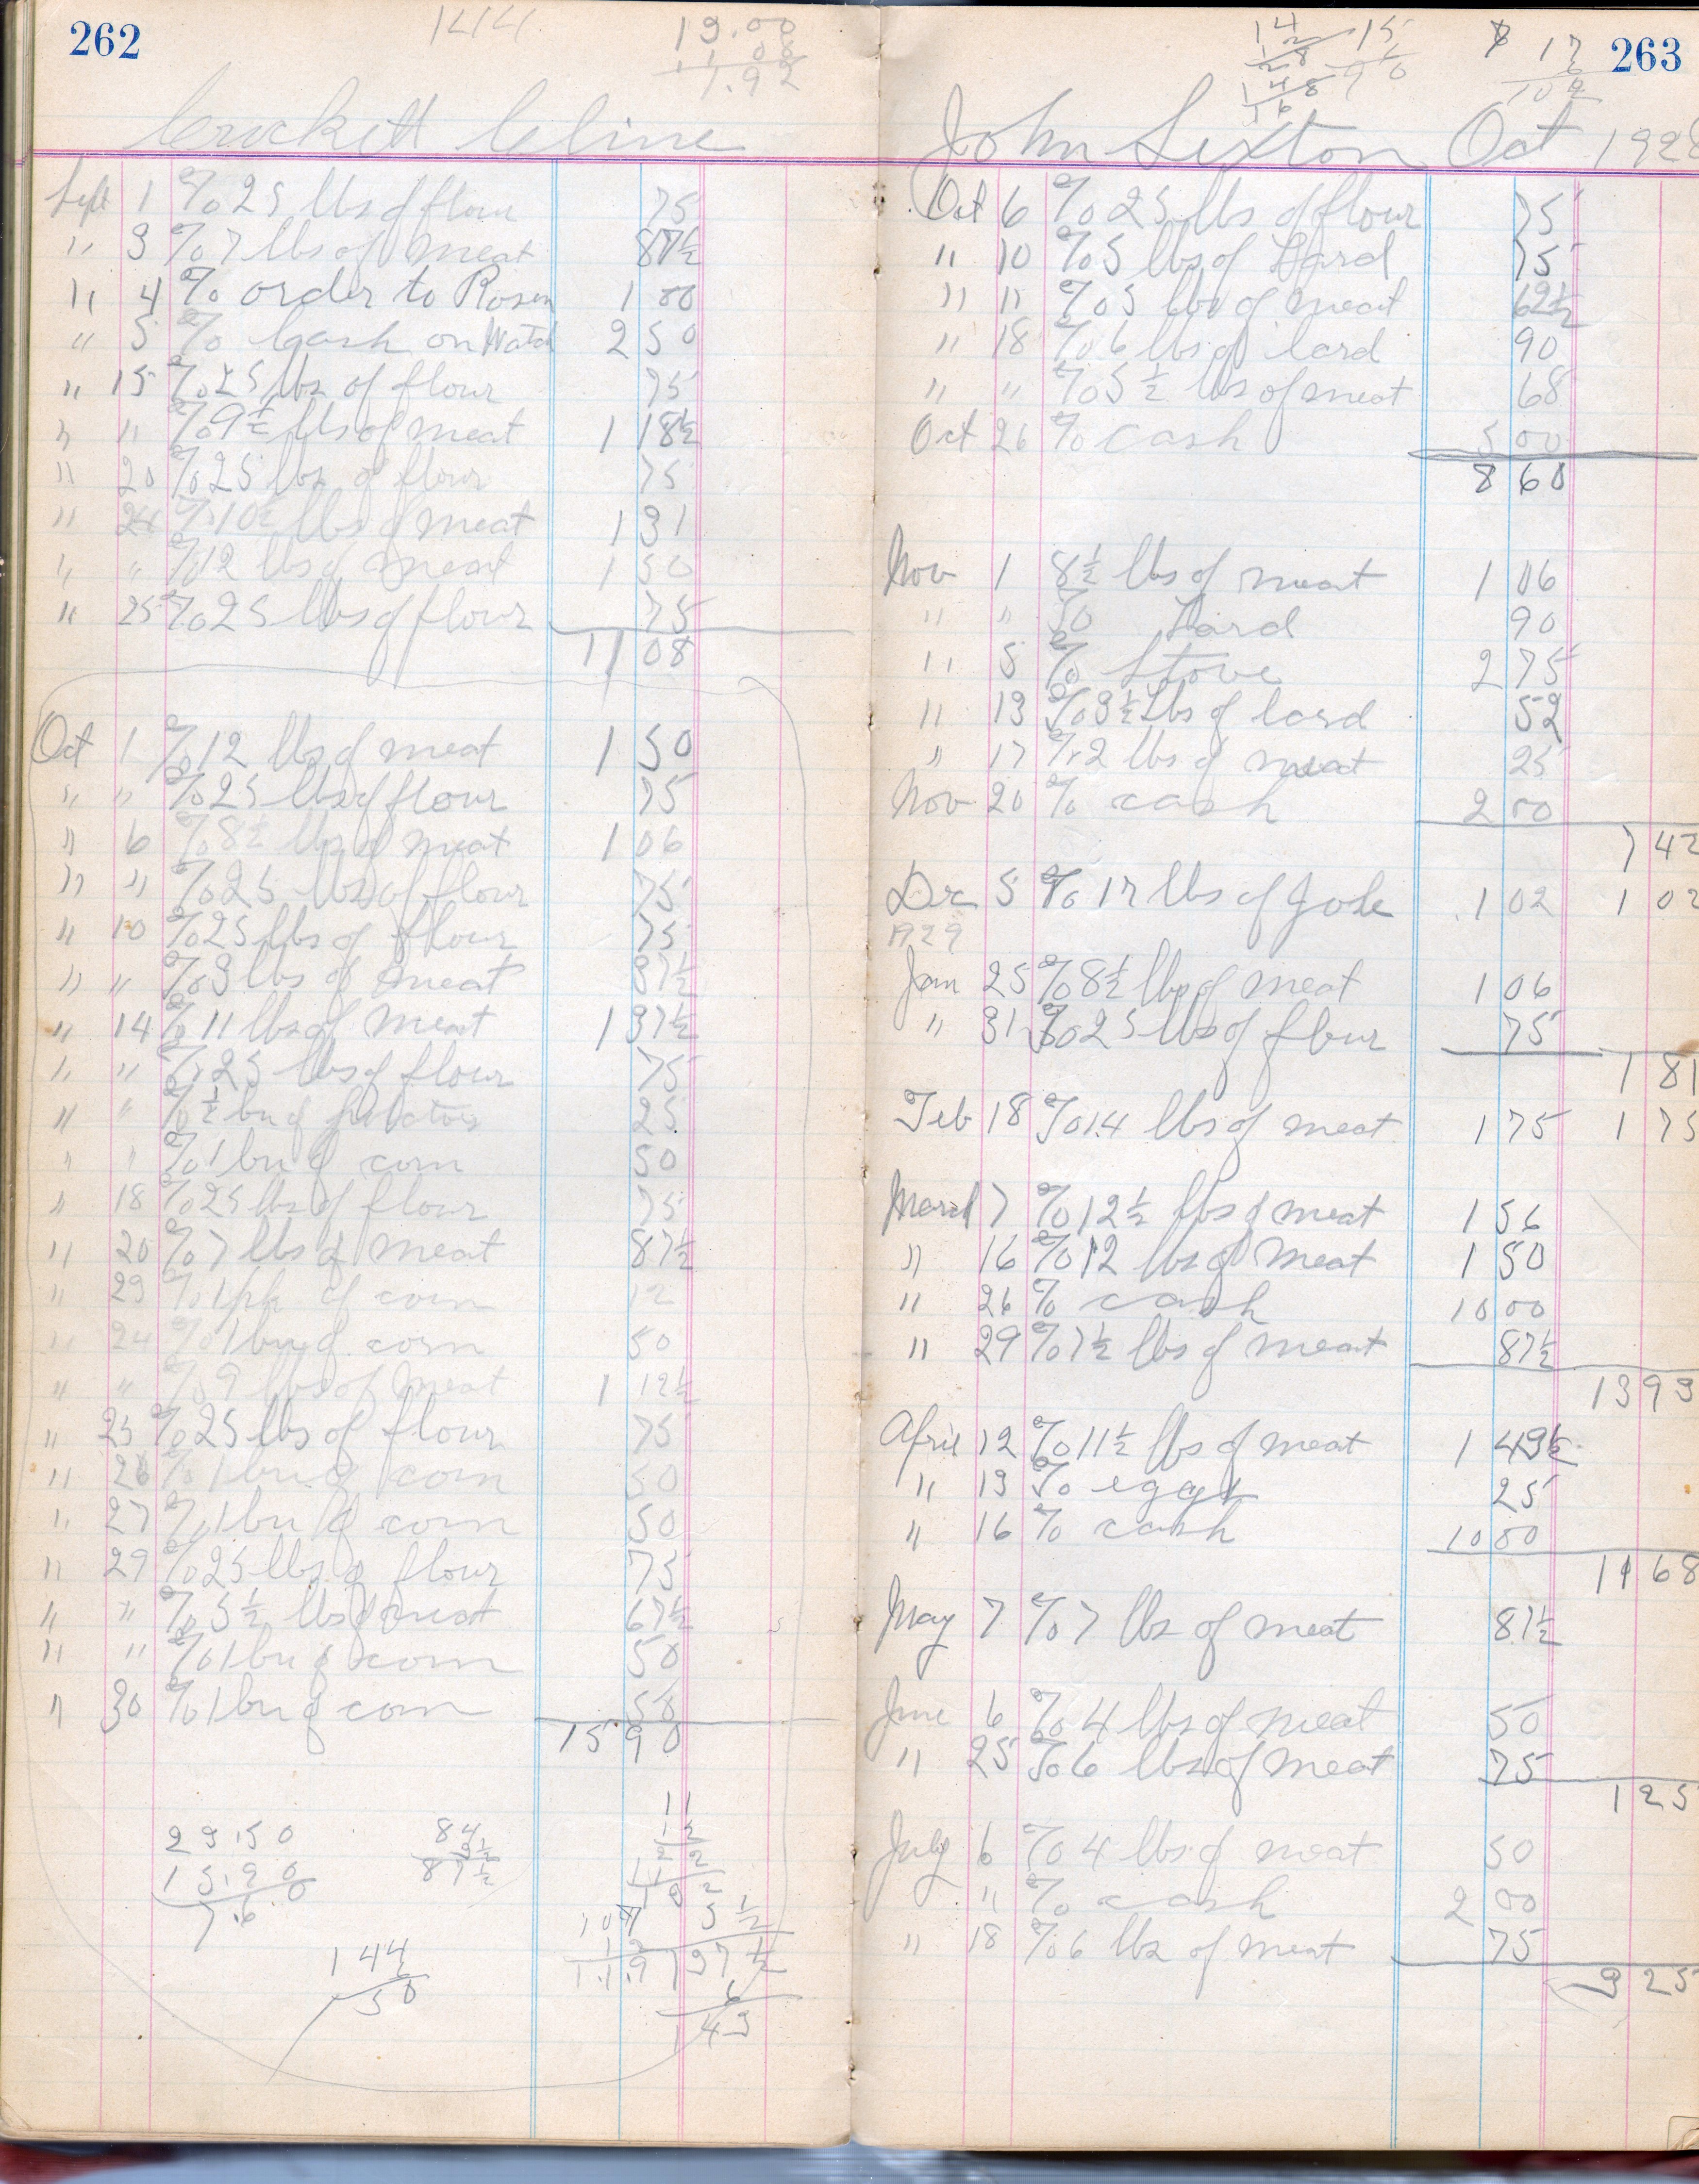 262
19.00
1 08
17.92
Crockett Cline
Sept 1 % 25 lbs of flour 75
" 3 % 7 lbs of meat 87½
" 4 % order to Rosen 1 00
" 5 % Cash on Watch 2 50
" 15 % 25 lbs of flour 75
" " % 9½ lbs of meat 1 18½
" 20 % 25 lbs of flour 75
" 24 % 10½ lbs of meat 1 31
" " % 12 lbs of meat 1 50
" 25 % 25 lbs of flour 75
11 08
Oct 1 % 12 lbs of meat 1 50
" " % 25 lbs of flour 75
" 6 % 8½ lbs of meat 1 06
" " % 25 lbs of flour 75
" 10 % 25 lbs of flour 75
" " % 3 lbs of meat 37½
" 14 % 11 lbs of meat 1 37½
" " % 25 lbs of flour 75
" " % ½ bu of potatoes 25
" " % 1 bu of corn 50
" 18 % 25 lbs of flour 75
" 20 % 7 lbs of meat 87½
" 23 % 1 pk of corn 12
" 24 % 1 bu of corn 50
" " % 9 lbs of meat 1 12½
" 25 % 25 lbs of flour 75
" 26 % 1 bu of corn 50
" 27 % 1 bu of corn 50
" 29 % 25 lbs of flour 75
" " % 5½ lbs of meat 67½
" " % 1 bu of corn 50
" 30 % 1 bu of corn 50
15 90
23.50
15.90
7.60
84
3½
87½
144
50
11
12
22
11
132
5½
137½
6
143
263
John Sexton Oct 1928
Oct 6 % 25 lbs of flour 75
" 10 % 5 lbs of Lard 75
" 11 % 5 lbs of meat 62½
" 18 % 6 lbs of lard 90
" " % 5½ lbs of meat 68
Oct 26 % cash 5 00
8 60
Nov 1 8½ lbs of meat 1 06
" " Lard 90
" 5 % Stove 2 75
" 13 % 3½ lbs of lard 52
" 17 % 2 lbs of meat 25
Nov 20 % cash 2 00
7 42
Dec 5 % 17 lbs of Jole 1 02 1 02
1929
Jan 25 % 8½ lbs of meat 1 06
" 31 % 25 lbs of flour 75
1 81
Feb 18 % 14 lbs of meat 1 75 1 75
March 7 % 12½ lbs of meat 1 56
" 16 % 12 lbs of meat 1 50
" 26 % cash 10 00
" 29 % 7½ lbs of meat 87½
13 93
April 12 % 11½ lbs of meat 1 43½
" 13 % eggs 25
" 16 % cash 10 00
11 68
May 7 % 7 lbs of meat 87½
June 6 % 4 lbs of meat 50
" 25 % 6 lbs of meat 75
1 25
July 6 % 4 lbs of meat 50
" % cash 2 00
" 18 % 6 lbs of meat 75
3 25